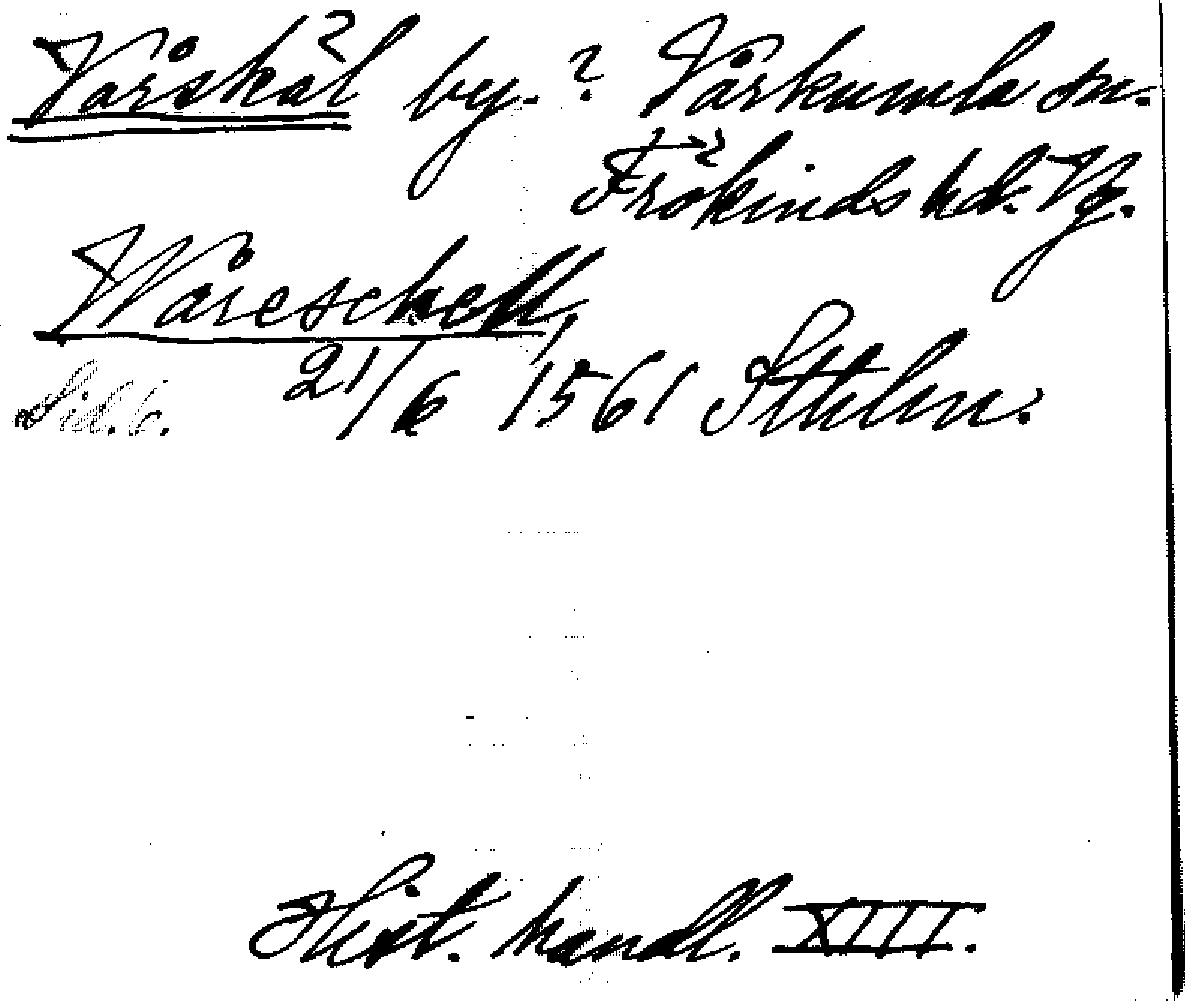 Vårskäl by. ? Vårkumla sn.
Frökinds hd. Vg.
Wåreschell,
Sid. 6. 21/6 1561 Sthlm.
Hist. handl. XIII.